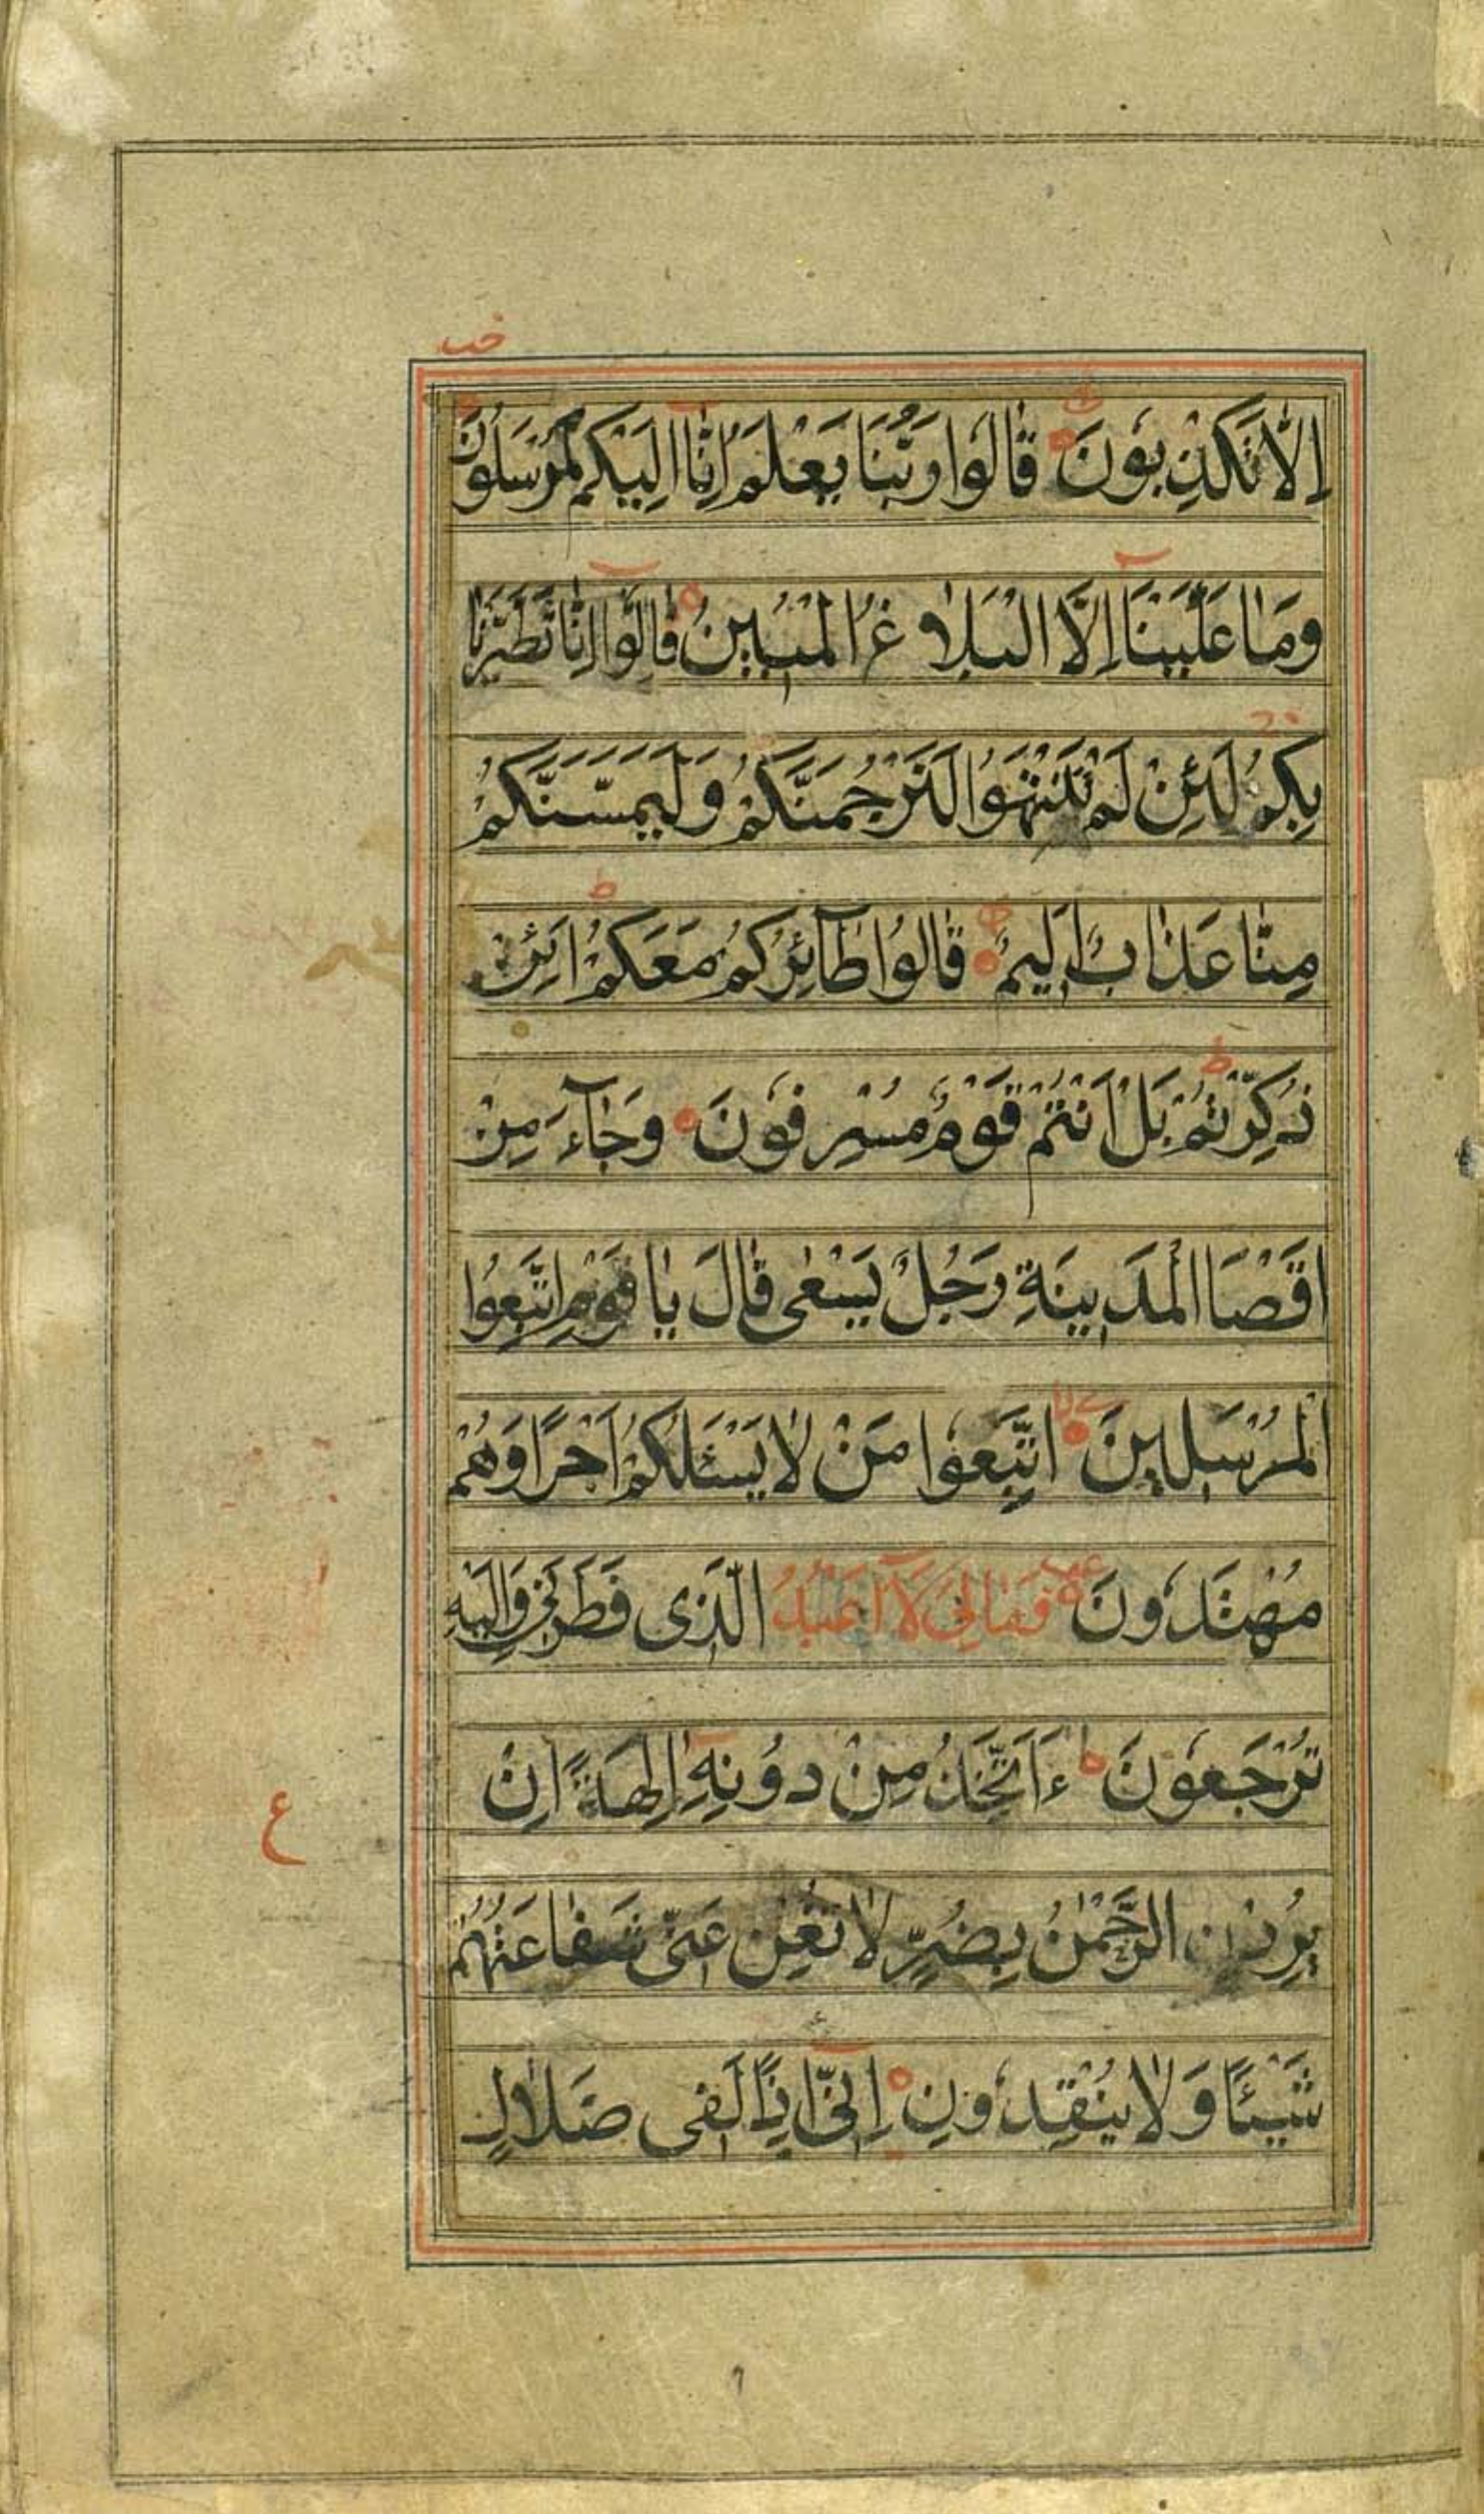 خب
اِلّٰا تَكْذِبُونَ قٰالُوا رَبُّنَا يَعْلَمُ اِنّٰا اِلَيْكُمْ لَمُرْسَلُونَ
وَمٰا عَلَيْنَا اِلَّا الْبَلٰاغُ الْمُبِينُ قٰالُوا اِنّٰا تَطَيَّرْنٰا
بِكُمْ لَئِنْ لَمْ تَنْتَهُوا لَنَرْجُمَنَّكُمْ وَلَيَمَسَّنَّكُمْ
مِنّٰا عَذٰابٌ اَلِيمٌ قٰالُوا طٰٓائِرُكُمْ مَعَكُمْ اَئِنْ
ذُكِّرْتُمْ بَلْ اَنْتُمْ قَوْمٌ مُسْرِفُونَ وَجٰٓاءَ مِنْ
اَقْصَا الْمَدِينَةِ رَجُلٌ يَسْعٰى قٰالَ يٰا قَوْمِ اتَّبِعُوا
الْمُرْسَلِينَ اتَّبِعُوا مَنْ لٰا يَسْئَلُكُمْ اَجْرًا وَهُمْ
مُهْتَدُونَ وَمٰا لِىَ لٰٓا اَعْبُدُ الَّذِى فَطَرَنِى وَاِلَيْهِ
تُرْجَعُونَ ءَاَتَّخِذُ مِنْ دُونِهِ اٰلِهَةً اِنْ
ع
يُرِدْنِ الرَّحْمٰنُ بِضُرٍّ لٰا تُغْنِ عَنِّى شَفٰاعَتُهُمْ
شَيْئًا وَلٰا يُنْقِذُونِ اِنِّىٓ اِذًا لَفِى ضَلٰالٍ